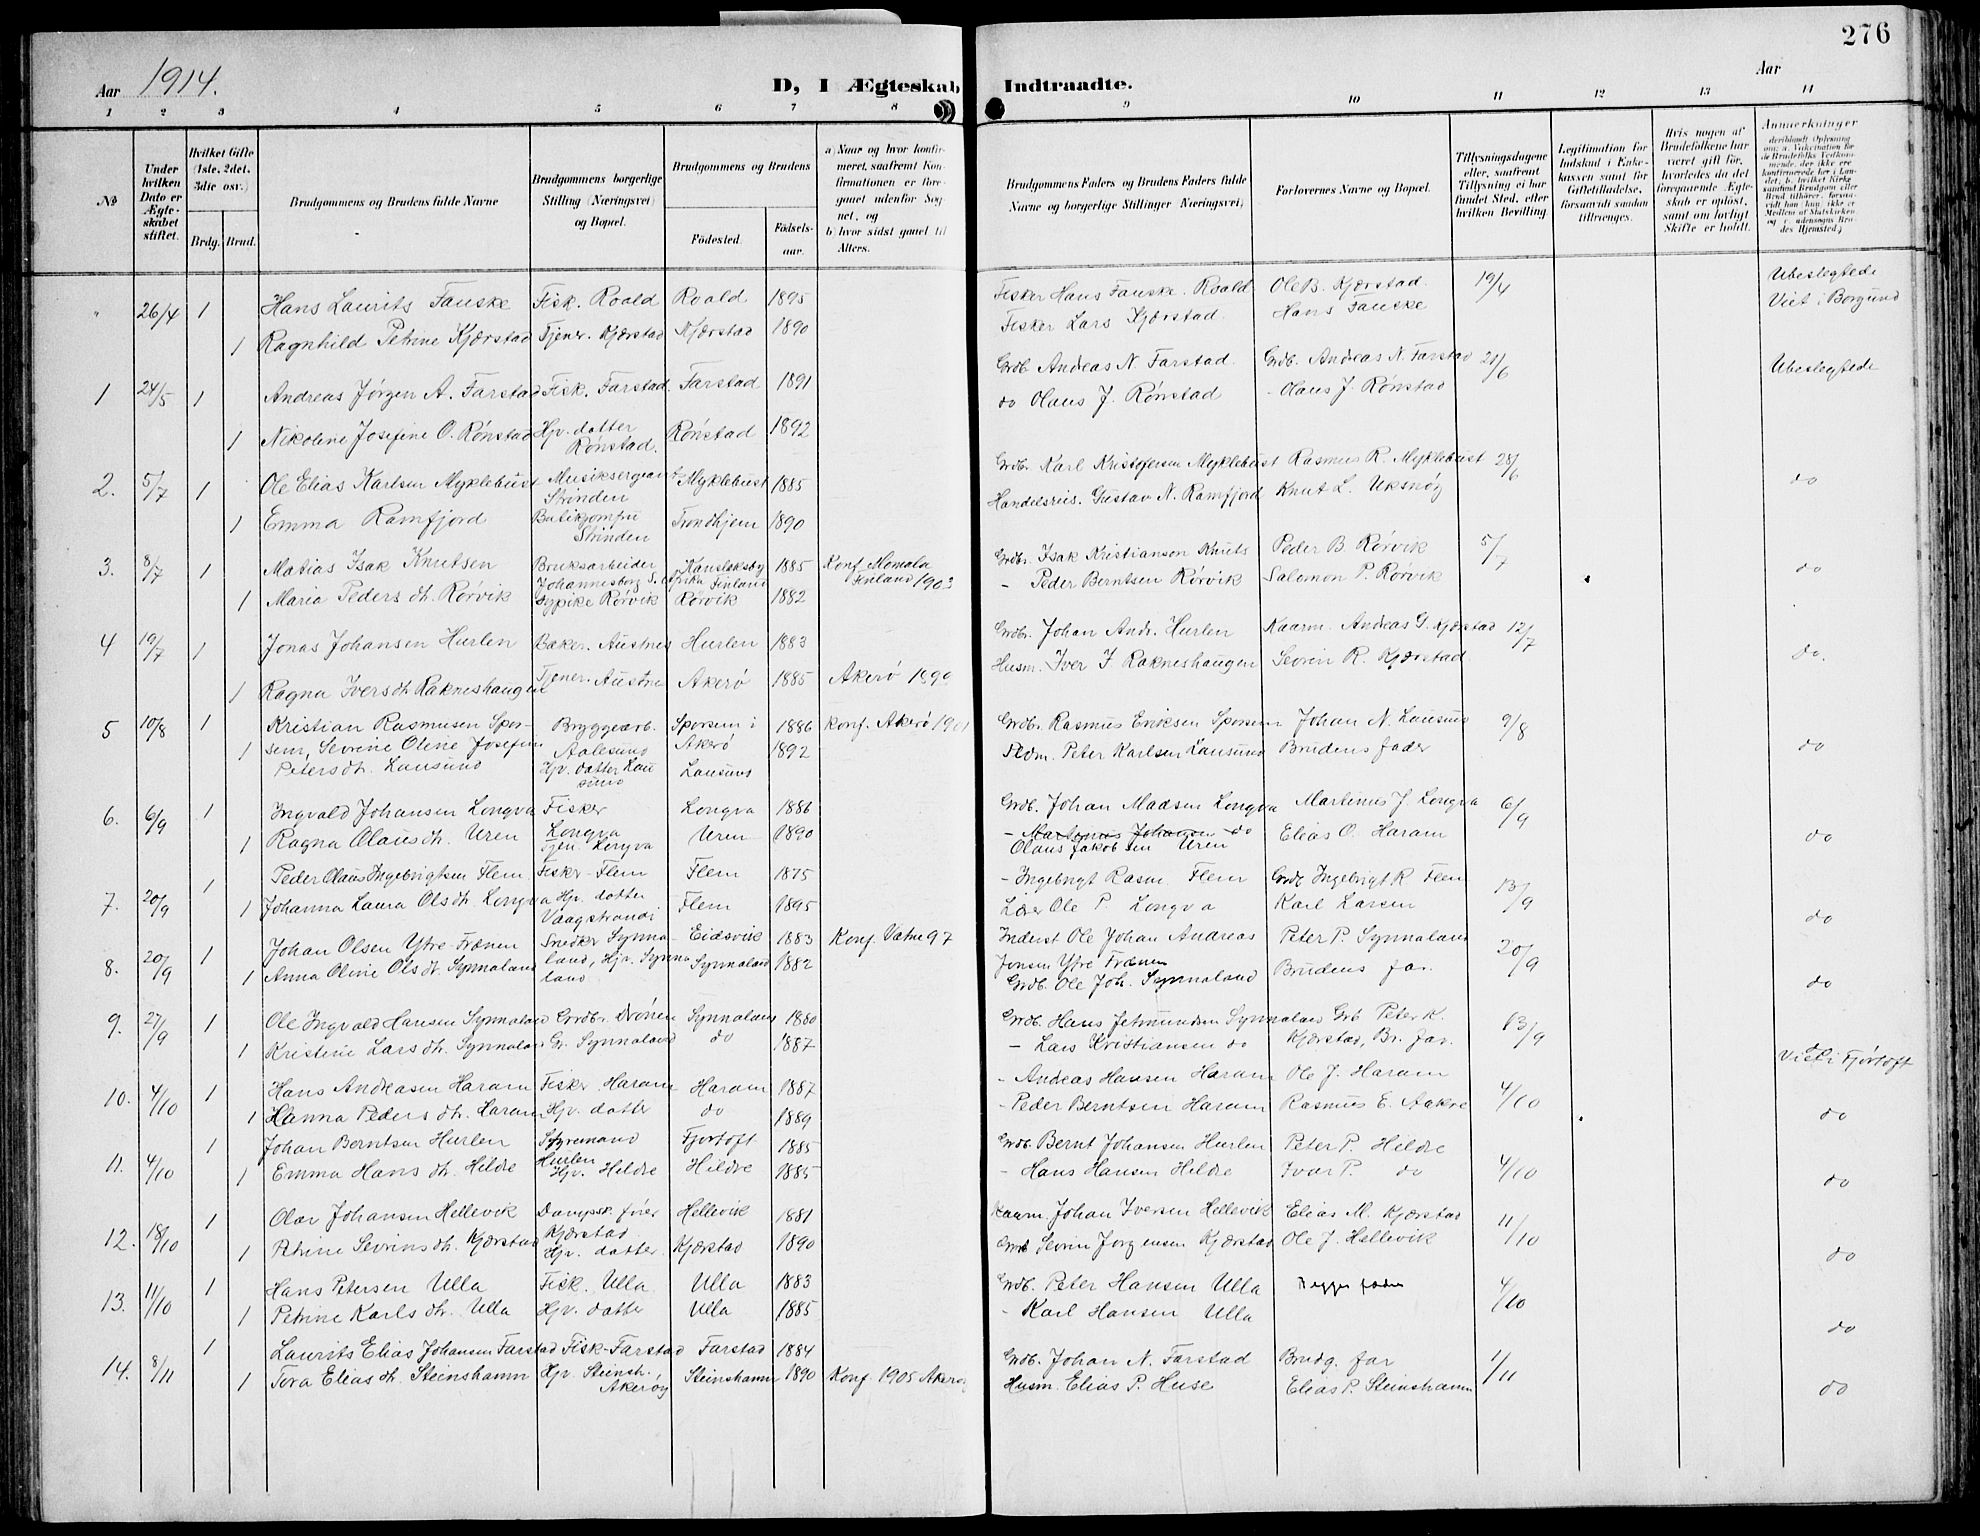 276
Aar 1914.
D, I Ægteskab Indtraadte.
Aar
1 2 3 4 5 6 7 8 9 10 11 12 13 14
№
Under hvilken Dato er Ægteskabet stiftet.
Hvilket Gifte (1ste, 2det, 3die osv.)
Brdg. Brud.
Brudgommens og Brudens fulde Navne
Brudgommens borgerlige Stilling (Næringsvei) og Bopæl.
Brudgommens og Brudens
Fødested. Fødselsaar.
a) Naar og hvor konfirmeret, saafremt Konfirmationen er foregaaet udenfor Sognet, og
b) hvor sidst gaaet til Alters.
Brudgommens Faders og Brudens Faders fulde Navne og borgerlige Stillinger (Næringsvei)
Forlovernes Navne og Bopæl.
Tillysningsdagene eller, saafremt Tillysning ei har fundet Sted, efter hvilken Bevilling
Legitimation for Indskud i Enkekassen samt for Giftetilladelse, forsaavidt saadan tiltrænges.
Hvis nogen af Brudefolkene har været gift før, hvorledes da det foregaaende Ægteskab er opløst, samt om lovligt Skifte er holdt.
Anmærkninger
" 26/4 1 Hans Laurits Fauske Fisk. Roald Roald 1895 Fisker Hans Fauske. Roald Ole B. Kjærstad. 19/4 Ubeslegtede
1 Ragnhild Petrine Kjærstad Tjener. Kjærstad Kjærstad 1890 Fisker Lars Kjærstad. Hans Fauske Viet i Borgund
1 24/5 1 Andreas Jørgen A. Farstad Fisk. Farstad. Farstad 1891 Grdb. Andreas N. Farstad. Grdb. Andreas N. Farstad 21/6 Ubeslegtede
1 Nikoline Josefine O. Rønstad Hjv. datter Rønstad. Rønstad 1892 do Olaus J. Rønstad - Olaus J. Rønstad
2. 5/7 1 Ole Elias Karlsen Myklebust Musiksergeant Strinden Myklebust 1885 Grdb. Karl Kristofersen Myklebust Rasmus R. Myklebust 28/6 do
1 Emma Ramfjord Strinden Trondhjem 1890 Handelsreis. Gustav N. Ramfjord Knut L. Uksnøy
3. 8/7 1 Matias Isak Knutsen Bruksarbeider Johannesborg S. Afrika Finland 1885 Konf. Finland 1903 Grdb. Isak Kristianson Knuts Peder B. Rørvik 5/7 do
1 Maria Peders dt. Rørvik Sypike Rørvik Rørvik 1882 - Peder Berntsen Rørvik Salomon P. Rørvik
4 19/7 1 Jonas Johansen Hurlen Baker. Austnes Hurlen 1883 Grdb. Johan Andr. Hurlen Kaarm. Andreas G. Kjærstad 12/7 do.
1 Ragna Ivers dt. Rakneshaugen Tjener. Austnes Akerø 1885 Akerø 1899 Husm. Iver J. Rakneshaugen Sevrin R. Kjærstad.
5 10/8 1 Kristian Rasmusen Spor- Bryggearb. Sporsem i 1886 Konf. Akerø 1901 Grdb. Rasmus Eriksen Sporsem Johan N. Lausund 9/8
1 sem, Sevrine Oline Josefine Aalesund Akerø 1892 Peter Karlsen Lausund Brudens fader do
Peters dt. Lausund Hjv. datter Lausund Lausund
6. 6/9 1 Ingvald Johansen Longva Fisker Longva 1886 Grdb. Johan Madsen Longva Martinus J. Longva 6/9
1 Ragna Olaus dt. Uren Longva Tjen. Longva Uren 1890 - Martinus Johansen do Elias O. Haram do
Olaus Jakobsen Uren
7. 20/9 1 Peder Olaus Ingebrigtsen Flem Fisker - Flem Flem 1875 - Ingebrigt Rasm. Flem Grdb. Ingebrigt R. Flem 13/9
1 Johanna Laura Ols dt. Longva Hjv. datter Vaagstrand Flem 1895 Lærer Ole P. Longva Karl Larsen do
8. 20/9 1 Johan Olsen Ytre-Frænen Snedker Synna- Eidsvik 1883 Konf. Vatne 97 Inderst Ole Johan Andreas Peter P. Synnaland 20/9
1 Anna Oline Ols dt. Synnaland land, Hjv. Synnaland Synnaland 1882 Jonsen Ytre Frænen
Grdb. Ole Joh. Synnaland Brudens far. do
9. 27/9 1 Ole Ingvald Hansen Synnaland Grdbr. Drønen Synnaland 1880 Grdb. Hans Jetmundsen Synnaland Grb Peter K. 13/9
1 Kristine Lars dt. Synnaland Gr. Synnaland do 1887 - Lars Kristiansen do Kjærstad, Br. far.
10. 4/10 1 Hans Andreasen Haram Fisker. Haram Haram 1887 - Andreas Hansen Haram Ole J. Haram 4/10 Viet i Fjørtoft
1 Hanna Peders dt. Haram Hjv. datter do 1889 - Peder Berntsen Haram Rasmus E. Aakre do
11. 4/10 1 Johan Berntsen Hurlen Styremand Hurlen Fjørtoft 1885 Grdb. Bernt Johansen Hurlen Peter P. Hildre 4/10
1 Emma Hans dt. Hildre Hjv. Hildre Hildre 1885 - Hans Hansen Hildre Ivar P. do do
12. 18/10 1 Olav Johansen Hellevik Dampsk. fører Kjærstad Hellevik 1881 Kaarm. Johan Iversen Hellevik Elias M. Kjærstad 11/10
1 Petrine Sevrins dt. Kjærstad Hjv. datter. Kjærstad 1890 Grdb Sevrin Jørgensen Kjærstad Ole J. Hellevik do
13. 11/10 1 Hans Petersen Ulla Fisk. Ulla Ulla 1883 Grdb. Peter Hansen Ulla Begges fædre 4/10
1 Petrine Karls dt. Ulla Hjv. datter Ulla 1885 - Karl Hansen Ulla do
14. 8/11 1 Laurits Elias Johansen Farstad Fisk - Farstad Farstad 1884 Grdb. Johan N. Farstad Brudg. far 1/11
1 Tora Elias dt. Steinshamn Hjv. Steinsh. Akerøy Steinshamn 1890 Konf. 1905 Akerøy Husm. Elias P. Huse Elias P. Steinshamn do